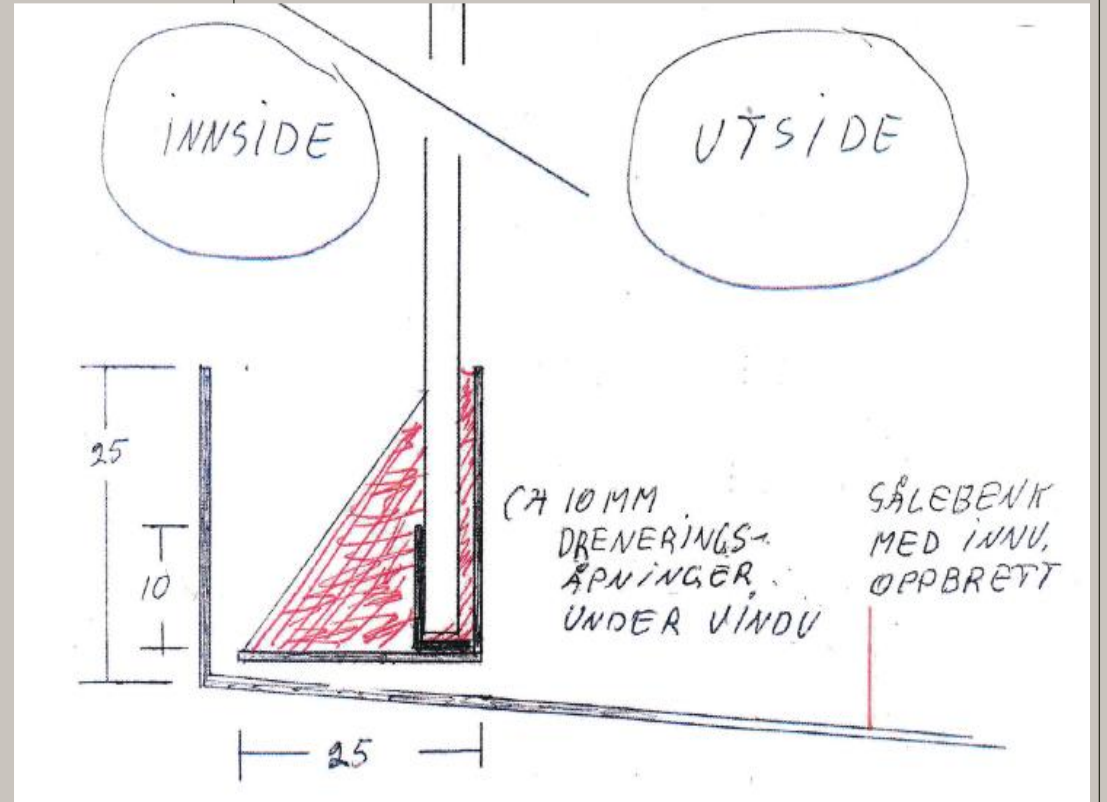 INNSIDE
UTSIDE
25
10
CA 10 MM
DRENERINGS-
ÅPNINGER
UNDER VINDU
SÅLEBENK
MED INNV.
OPPBRETT
25